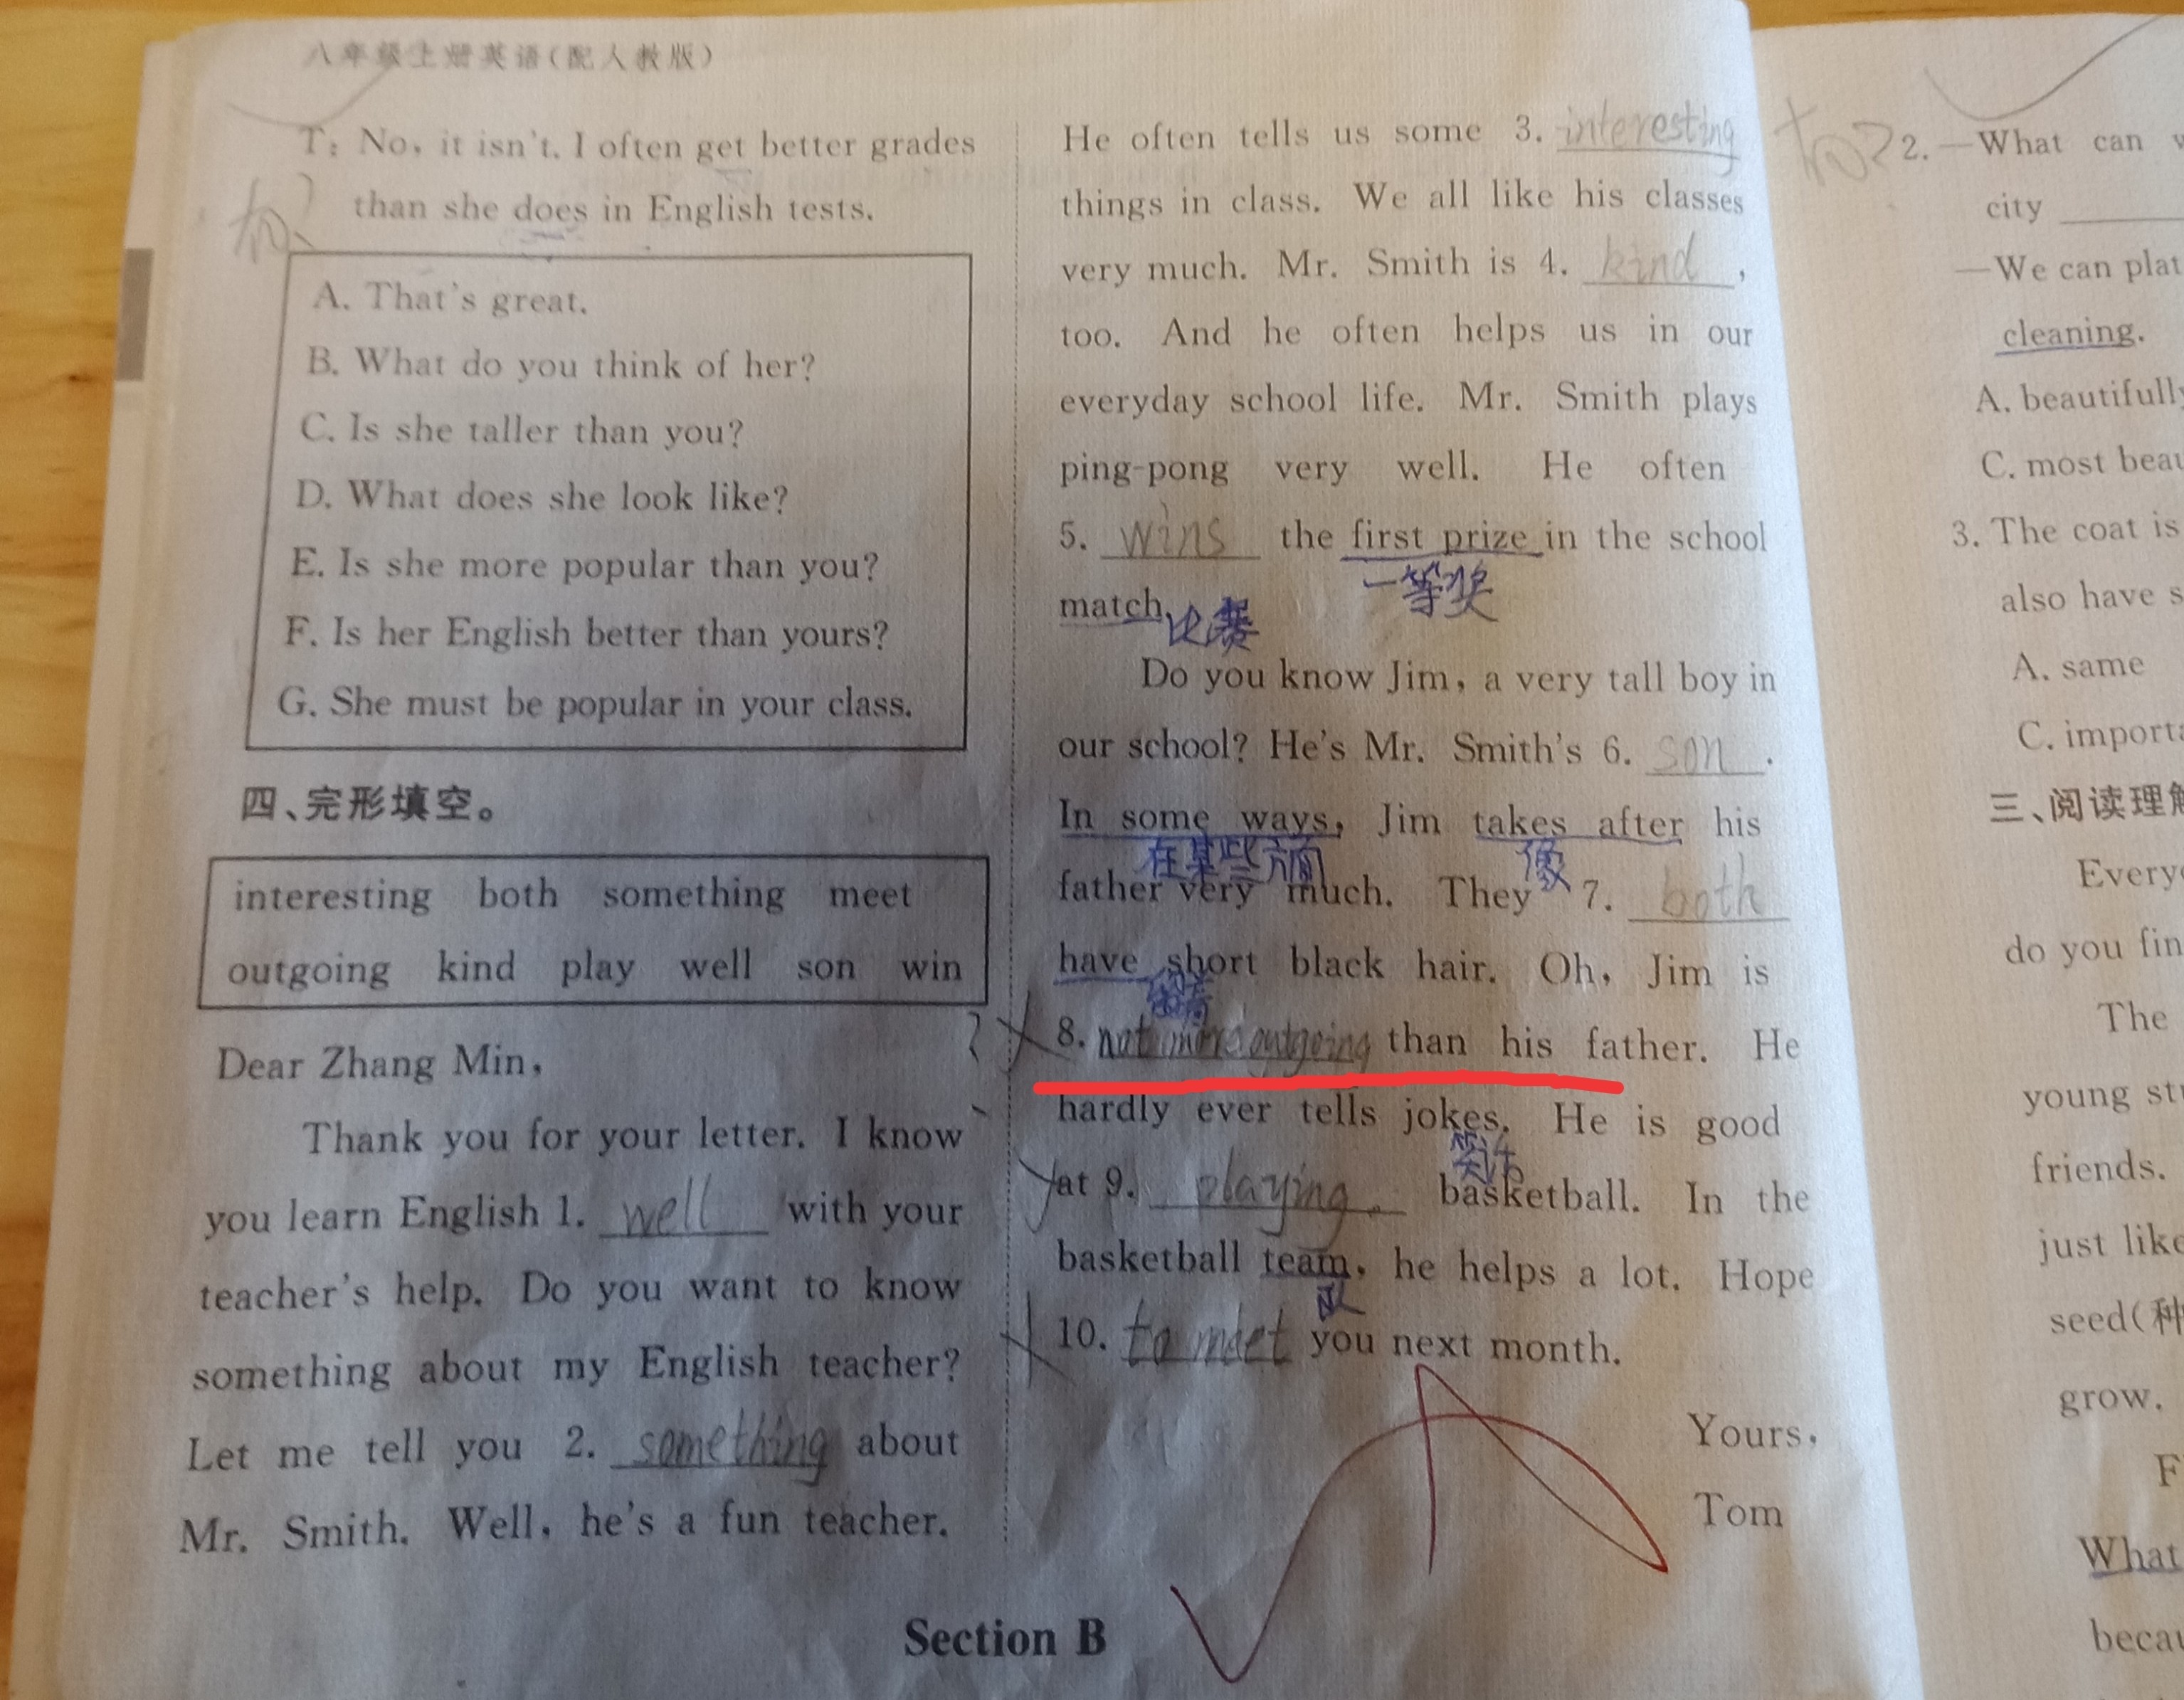 八年级上册英语(配人教版)
T: No, it isn't. I often get better grades
than she does in English tests.
A. That's great.
B. What do you think of her?
C. Is she taller than you?
D. What does she look like?
E. Is she more popular than you?
F. Is her English better than yours?
G. She must be popular in your class.
四、完形填空。
interesting both something meet
outgoing kind play well son win
Dear Zhang Min,
Thank you for your letter. I know
you learn English 1. well with your
teacher's help. Do you want to know
something about my English teacher?
Let me tell you 2. something about
Mr. Smith. Well, he's a fun teacher.
He often tells us some 3. interesting
things in class. We all like his classes
very much. Mr. Smith is 4. kind ,
too. And he often helps us in our
everyday school life. Mr. Smith plays
ping-pong very well. He often
5. wins the first prize in the school
一等奖
match.
比赛
Do you know Jim, a very tall boy in
our school? He's Mr. Smith's 6. son .
In some ways, Jim takes after his
在某些方面 像
father very much. They 7. both
have short black hair. Oh, Jim is
8. not more outgoing than his father. He
hardly ever tells jokes. He is good
笑话
at 9. playing basketball. In the
basketball team, he helps a lot. Hope
队
10. to meet you next month.
Yours,
Tom
Section B
2. —What can
city
—We can
cleaning.
A.
C. most
3. The coat is
also have
A. same
C.
三、阅读
do you
The
young
friends.
just
seed(
grow.
What